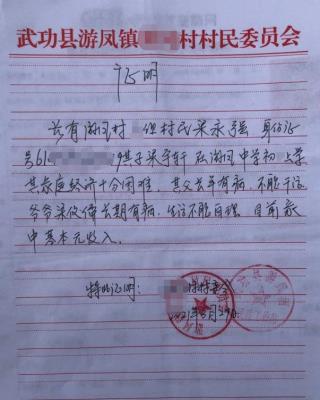 武功县游凤镇 村村民委员会
证明
兹有游凤村 组村民梁永强 身份证
号61 9其子梁宇轩 在游凤中学初一上学
其家庭经济十分困难,其父长年有病,不能干活
爷爷梁 长期有病,生活不能自理,目前家
中基本无收入。
特此证明:
村村委会
2021年3月29日